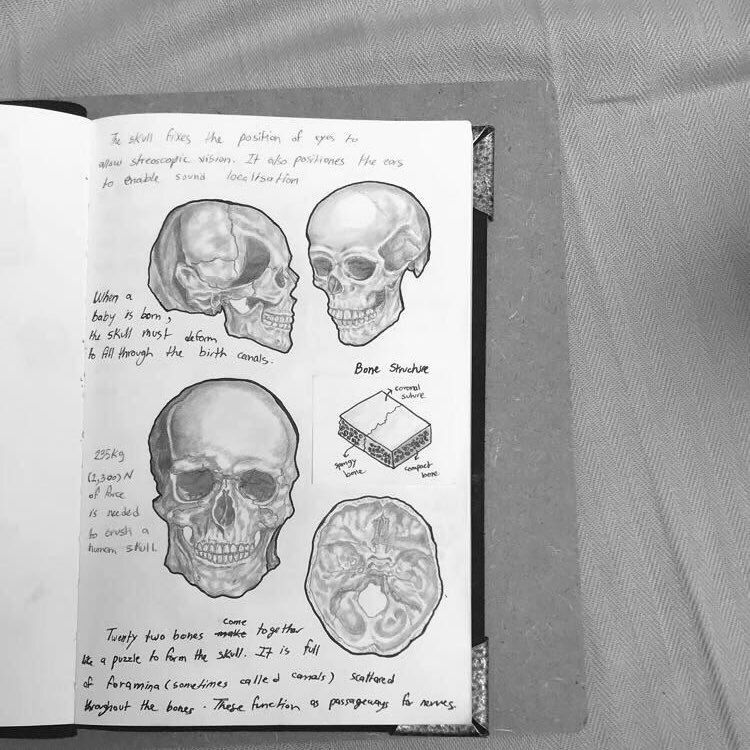 The skull fixes the position of eyes to
allow streoscoptic vision. It also positiones the ears
to enable sound localisation
When a
baby is born,
the skull must deform
to fill through the birth canals.
Bone Structure
coronal
suture
spongy
bone
compact
bone
235kg
(2,300) N
of force
is needed
to crush a
human skull.
come
Twenty two bones make together
like a puzzle to form the skull. It is full
of foramina (sometimes called canals) scattered
throughout the bones. These function as passageways for nerves.